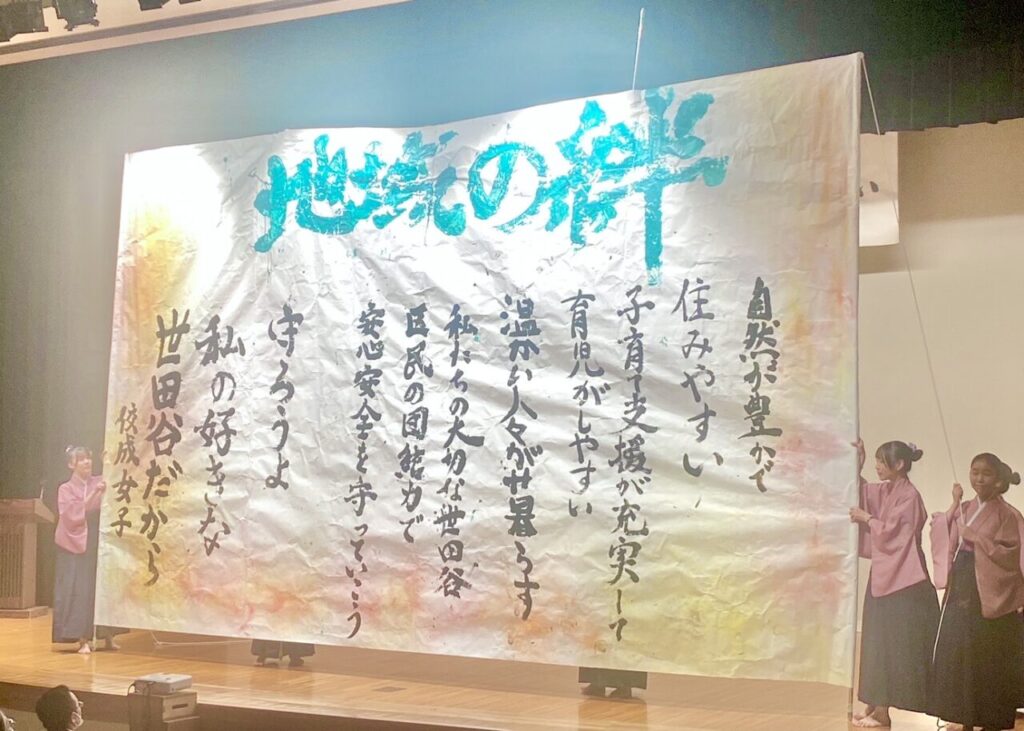 地域の絆
自然が豊かで
住みやすい
子育て支援が充実して
育児がしやすい
温かい人々が暮らす
私たちの大切な世田谷
区民の団結力で
安心安全を守っていこう
守ろうよ
私の好きな
世田谷だから
佼成女子
い